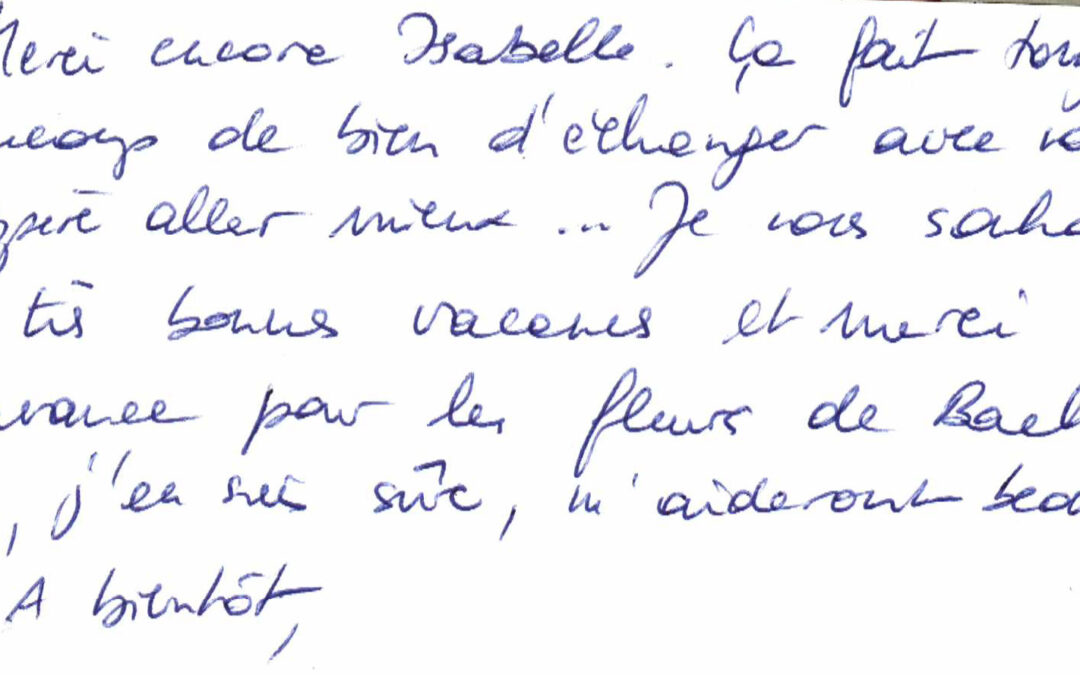 Merci encore Isabelle. Ça fait touj
ucoup de bien d'échanger avec vo
spère aller mieux ... Je vous souha
très bonnes vacances et merci
avance pour les fleurs de Bach
, j'en suis sûre, m'aideront beau
A bientôt,